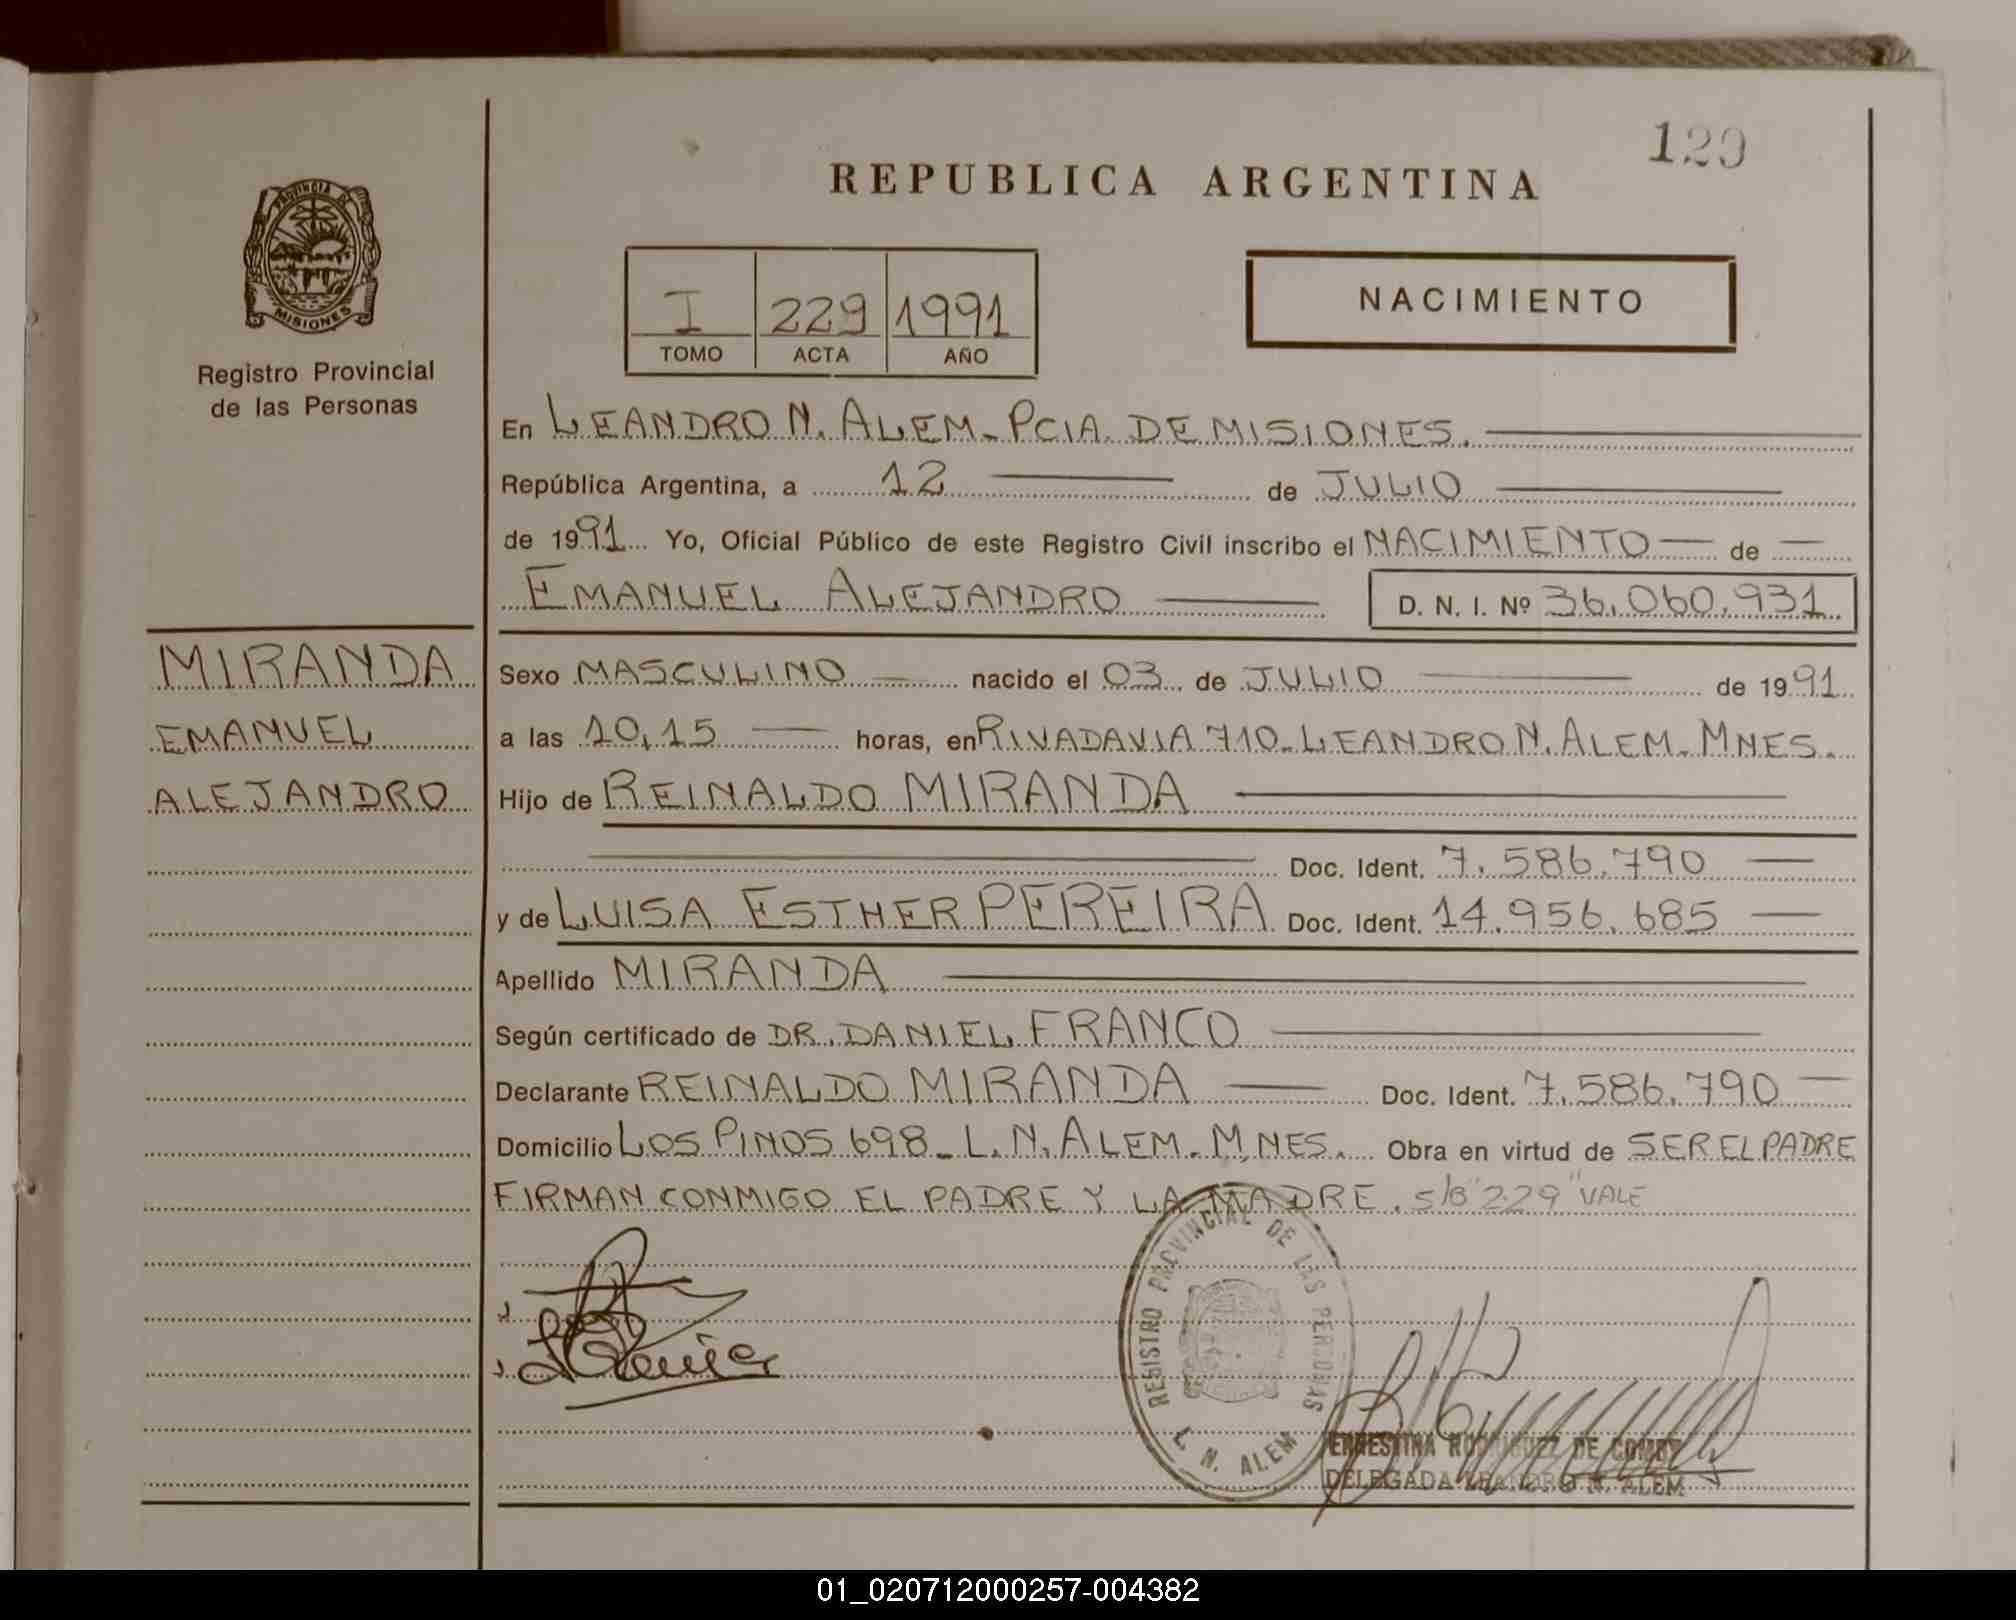 129
REPUBLICA ARGENTINA
PROVINCIA DE
MISIONES
Registro Provincial
de las Personas
I 229 1991
TOMO ACTA AÑO
NACIMIENTO
En LEANDRO N. ALEM - PCIA. DE MISIONES.
República Argentina, a 12 de JULIO
de 1991 Yo, Oficial Público de este Registro Civil inscribo el NACIMIENTO de
EMANUEL ALEJANDRO D. N. I. Nº 36.060.931
MIRANDA
EMANUEL
ALEJANDRO
Sexo MASCULINO nacido el 03 de JULIO de 1991
a las 10,15 horas, en RIVADAVIA 710 - LEANDRO N. ALEM - MNES.
Hijo de REINALDO MIRANDA
Doc. Ident. 7.586.790
y de LUISA ESTHER PEREIRA Doc. Ident. 14.956.685
Apellido MIRANDA
Según certificado de DR. DANIEL FRANCO
Declarante REINALDO MIRANDA Doc. Ident. 7.586.790
Domicilio LOS PINOS 698 - L. N. ALEM - MNES. Obra en virtud de SER EL PADRE
FIRMAN CONMIGO EL PADRE Y LA MADRE. S/B "229" VALE
REGISTRO PROVINCIAL DE LAS PERSONAS
L. N. ALEM
ERNESTINA RODRIGUEZ DE
DELEGADA LEANDRO N. ALEM
01_020712000257-004382